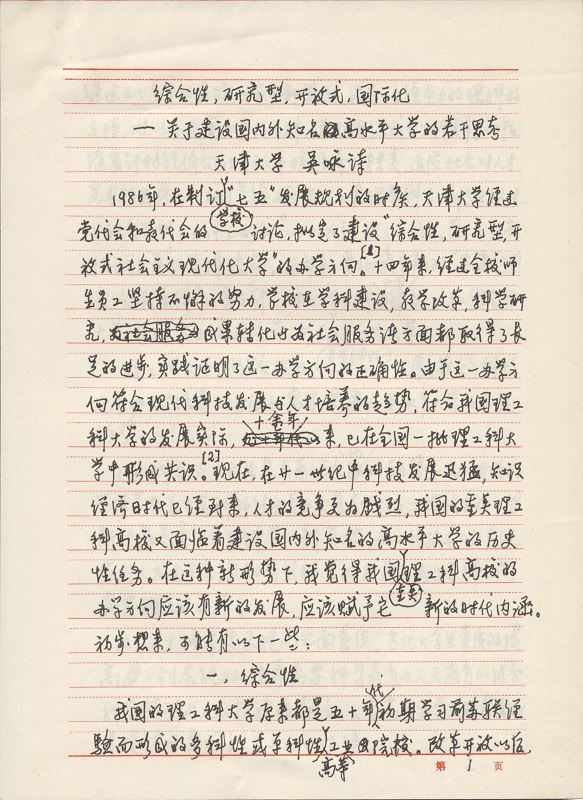 综合性，研究型，开放式，国际化
— 关于建设国内外知名高水平大学的若干思考
天津大学 吴咏诗
1986年，在制订“七五”发展规划的时候，天津大学经过
党代会和教代会的学校讨论，拟定了建设“综合性，研究型，开
放式社会主义现代化大学”的办学方向。[1]十四年来，经过全校师
生员工坚持不懈的努力，学校在学科建设，教学改革，科学研
究，成果转化与为社会服务诸方面都取得了长
足的进步，实践证明了这一办学方向的正确性。由于这一办学方
向符合现代科技发展与人才培养的趋势，符合我国理工
科大学的发展实际，十余年来，已在全国一批理工科大
学中形成共识。[2]现在，在廿一世纪中科技发展迅猛，知识
经济时代已经到来，人才的竞争更为激烈，我国的重点理工
科高校又面临着建设国内外知名的高水平大学的历史
性任务。在这种新形势下，我觉得我国重点理工科高校的
办学方向应该有新的发展，应该赋予它新的时代内涵。
初步想来，可能有以下一些：
一，综合性
我国的理工科大学原来都是五十年代初期学习前苏联经
验而形成的多科性或单科性高等工业院校。改革开放以后，
第 1 页